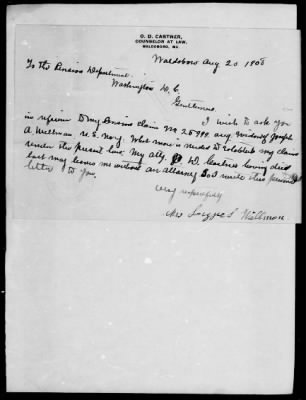 O. D. CASTNER,
COUNSELOR AT LAW,
WALDOBORO, ME.
Waldoboro Aug 20 1908
To the Pension Department
Washington D. C.
Gentlemen
I wish to ask you
in reference to my Pension Claim No 25799 as widow of Joseph
A Wellman U. S. Navy. What more is needed to establish my claim
under the present law. My atty. O D. Castner having died
last may leaves me without an attorney So I write this personal
letter to you.
very respectfully
Mrs Lizzie S Wellman